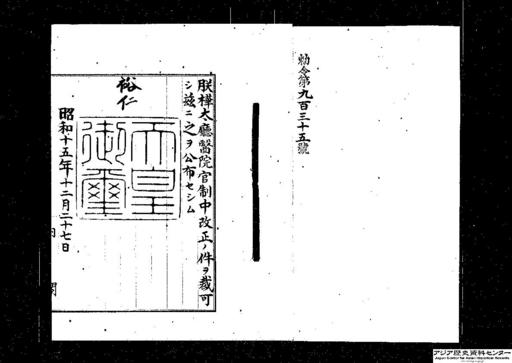 勅令第九百三十五號
朕樺太廳醫院官制中改正ノ件ヲ裁可
シ茲ニ之ヲ公布セシム
裕仁
天皇
御璽
昭和十五年十二月二十七日
内閣
アジア歴史資料センター
Japan Center for Asian Historical Records